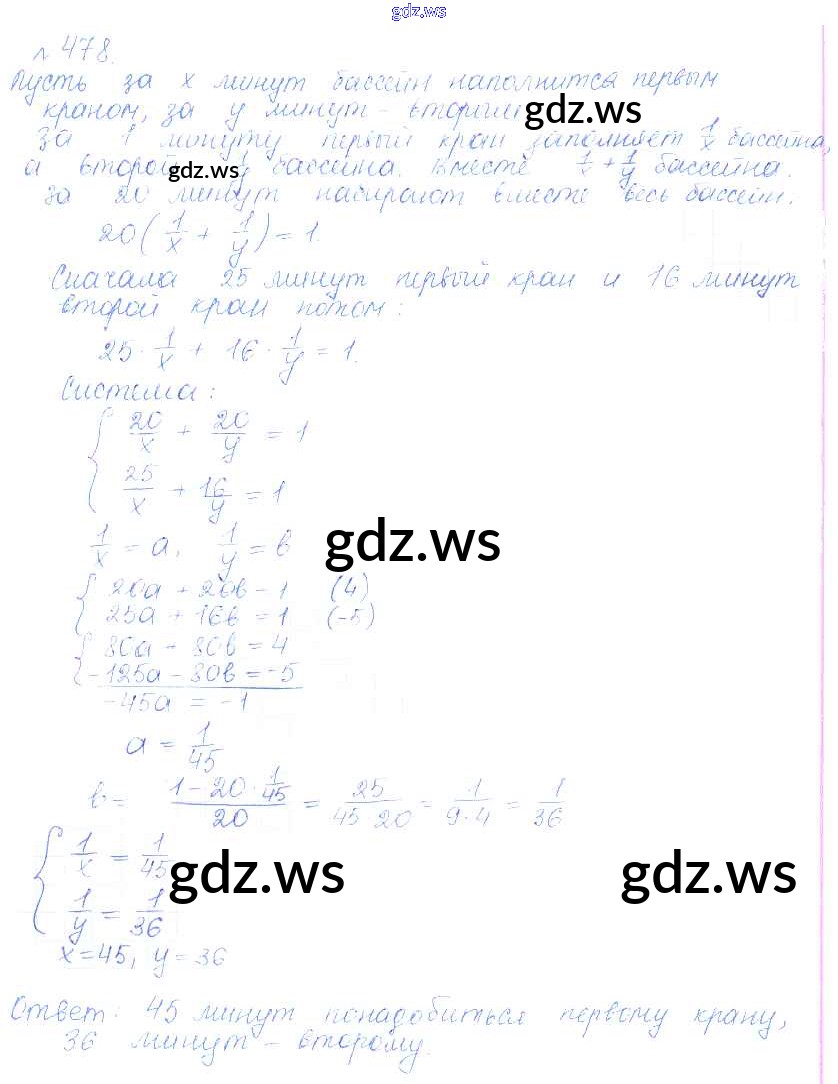 gdz.ws
№ 478.
Пусть за x минут бассейн наполнится первым
краном, за y минут – вторым
gdz.ws
за 1 минуту первый кран заполняет 1/x бассейна,
а второй 1/y бассейна. Вместе 1/x + 1/y бассейна.
gdz.ws
За 20 минут набирают вместе весь бассейн.
20(1/x + 1/y) = 1.
Сначала 25 минут первый кран и 16 минут
второй кран потом:
25 · 1/x + 16 · 1/y = 1.
Система:
{ 20/x + 20/y = 1
{ 25/x + 16/y = 1
1/x = a, 1/y = b
gdz.ws
{ 20a + 20b = 1 (4)
{ 25a + 16b = 1 (-5)
{ 80a + 80b = 4
{ -125a - 80b = -5
-45a = -1
a = 1/45
b = (1 - 20 · 1/45)/20 = 25/(45 · 20) = 1/(9·4) = 1/36
{ 1/x = 1/45
gdz.ws gdz.ws
{ 1/y = 1/36
x = 45, y = 36
Ответ: 45 минут понадобиться первому крану,
36 минут – второму.